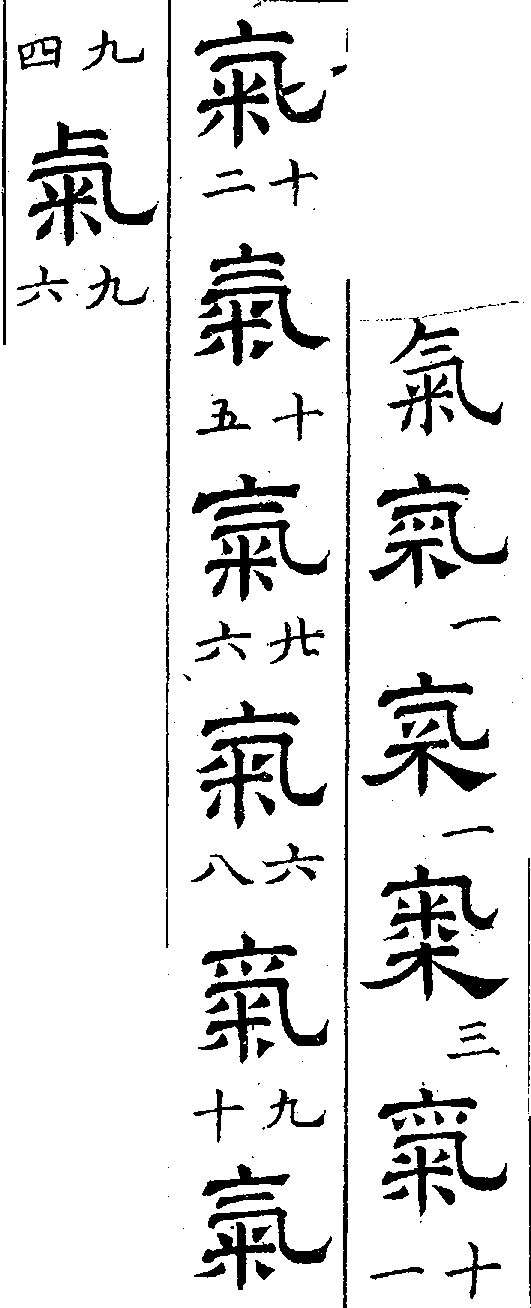 氣氣一氣一氣三氣十一
氣十二氣十五氣廿六氣六八氣九十氣
九四氣九六